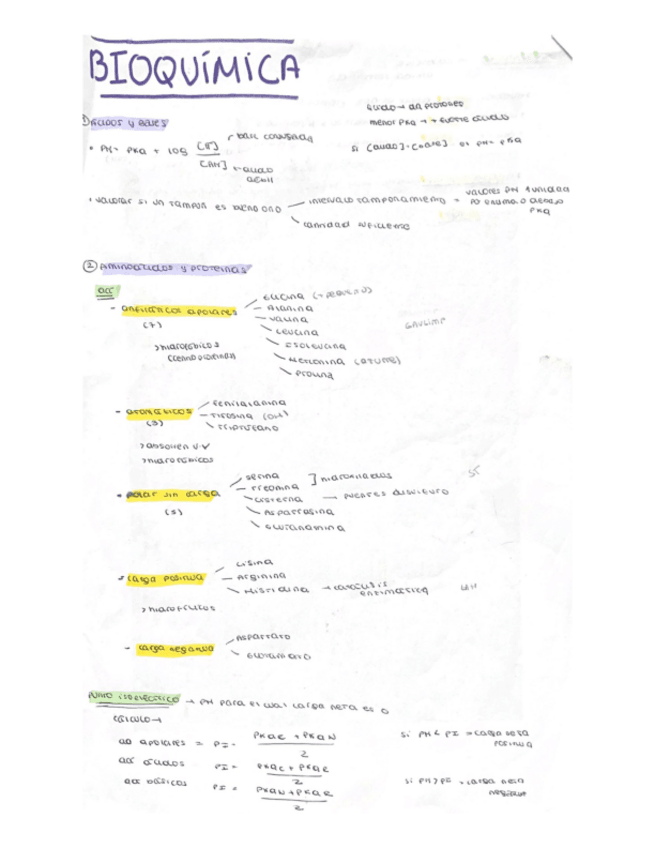 BIOQUÍMICA
1) ÁCIDOS Y BASES
ÁCIDO → dA PROTONES
menor PKa → + FUERTE ÁCIDO
• PH = PKa + log [A⁻] / [AH]
base conjugada
ácido débil
si [ácido] = [base] es pH = pKa
• valorar si un TAMPÓN es bueno
intervalo TAMPONAMIENTO = valores PH 1 unidad
PKa
cantidad suficiente
② Aminoácidos y proteínas
- alifáticos apolares
(7)
> hidrofóbicos
Glicina (+ pequeño)
Alanina
Valina
Leucina
Isoleucina
Metionina (azufre)
Prolina
GAVLIMP
- aromáticos
(3)
> absorben U.V
> hidrofóbicos
Fenilalanina
Tirosina (OH)
Triptófano
• polar sin carga
(5)
Serina
Treonina
] hidroxilados
Cisteína → puentes disulfuro
Asparragina
Glutamina
- carga positiva
> hidrofílicos
Lisina
Arginina
Histidina → catálisis enzimática
- carga negativa
Aspartato
Glutamato
PUNTO isoeléctrico → PH para el cual carga neta es 0
cálculo →
aa apolares = PI = PKaC + PKaN / 2
aa ácidos PI = PKaC + PKaR / 2
aa básicos PI = PKaN + PKaR / 2
si PH < PI = carga neta positiva
si PH > PI = carga neta negativa